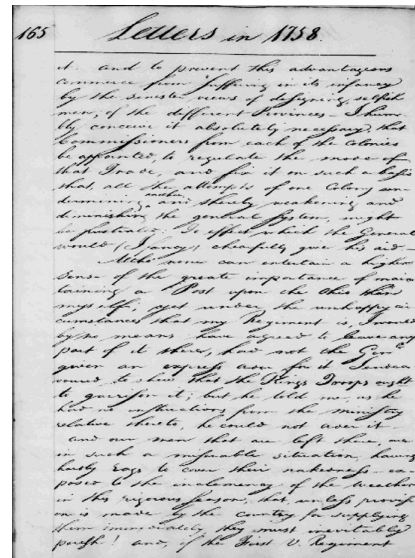 165 Letters in 1758
it - and to prevent this advantageous
commerce from suffering in its infancy
by the sinister views of designing, selfish
men, of the different Provinces - I hum
bly conceive it absolutely necessary, that
Commissioners from each of the Colonies
be appointed, to regulate the mode of
that Trade, and fix it on such a basis
that, all the attempts of one Colony un
dermining another and thereby weakening and
diminishing the general System, might
be frustrated. To effect which the General
would (I fancy) chearfully give his aid.
Altho' none can entertain a higher
Sense of the great importance of main
taining a Post upon the Ohio than
myself; yet under the unhappy cir
cumstances that my Regiment is, I would
by no means have agreed to leave any
part of it there, had not the Genl.
given an express order for it. I endeavo
ured to shew that the Kings Troops ought
to garrison it; but he told me, as he
had no instructions from the ministry
relative thereto, he could not order it
and our men that are left there, are
in such a miserable situation, having
hardly rags to cover their nakedness - ex
posed to the inclemency of the weather
in this rigorous season, that, unless provisi
on is made by the country for supplying
them immediately, they must inevitably
perish! and, if the First V. Regiment